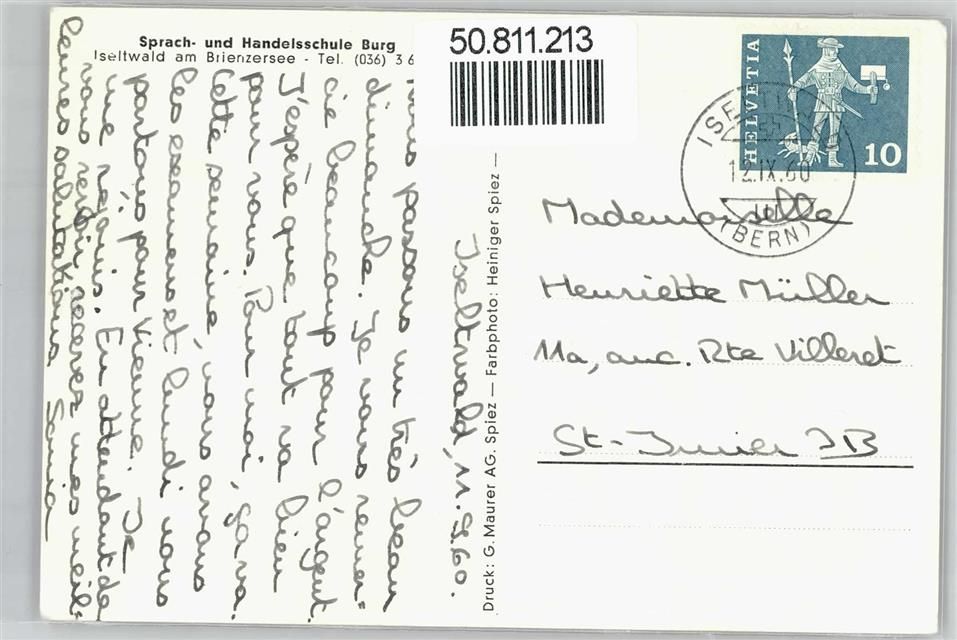 Sprach- und Handelsschule Burg
Iseltwald am Brienzersee - Tel. (036) 3 6
50.811.213
HELVETIA
10
12.IX.60
(BERN)
Iseltwald, 11.9.60.
Nous passons un très beau
dimanche. Je vous remer=
cie beaucoup pour l'argent.
J'espère que tout va bien
pour vous. Pour moi, ça va.
Cette semaine, nous avons
les examens et lundi nous
partons pour Vienne. Je
me réjouis. En attendant de
vous revoir, recevez mes meil=
leures salutations. Sonia
Druck: G. Maurer AG. Spiez — Farbphoto: Heiniger Spiez —
Mademoiselle
Henriette Müller
11a, anc. Rte Villeret
St-Imier JB